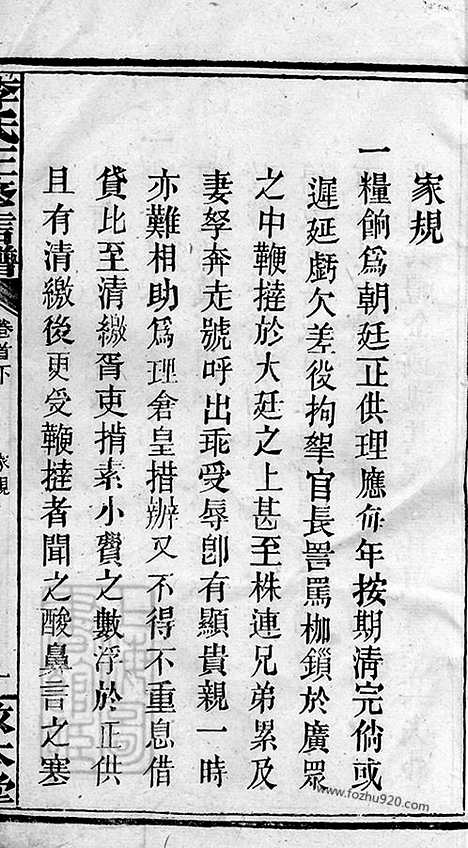 家規
一糧餉爲朝廷正供理應每年按期清完倘或
遲延虧欠差役拘拏官長詈罵枷鎖於廣眾
之中鞭撻於大廷之上甚至株連兄弟累及
妻孥奔走號呼出乖受辱卽有顯貴親一時
亦難相助爲理倉皇措辦又不得不重息借
貸比至清繳胥吏掯索小費之數浮於正供
且有清繳後更受鞭撻者聞之酸鼻言之塞
李氏三修言譜
卷首下
家規
一
敦本堂
www.fozhu920.com